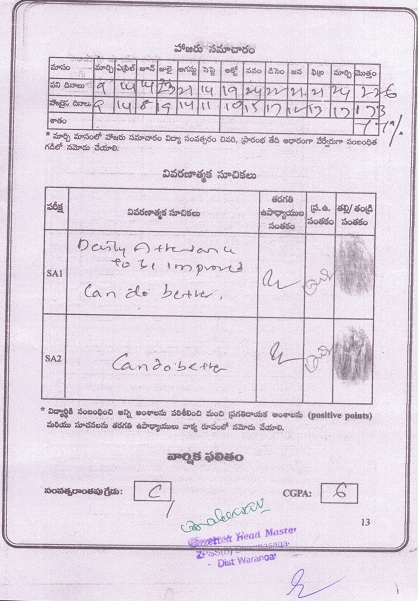 హాజరు సమాచారం
మాసం మార్చి ఏప్రిల్ జూన్ జులై ఆగస్టు సెప్టె అక్టో నవం డిసెం జన ఫిబ్ర మార్చి మొత్తం
పని దినాలు 9 14 14 23 21 14 19 24 22 21 21 24 226
హాజరైన దినాలు 9 14 8 19 14 11 10 15 17 12 173
శాతం 77%
* మార్చి మాసంలో హాజరు సమాచారం విద్యా సంవత్సరం చివరి, ప్రారంభ తేది ఆధారంగా వేర్వేరుగా సంబంధిత
గడిలో నమోదు చేయాలి.
వివరణాత్మక సూచికలు
పరీక్ష వివరణాత్మక సూచికలు తరగతి ఉపాధ్యాయుల సంతకం ప్ర.ఉ. సంతకం తల్లి/ తండ్రి సంతకం
SA1 Daily Attendance
to be improved
Can do better.
SA2 Can do better
* విద్యార్థికి సంబంధించి అన్ని అంశాలను పరిశీలించి మంచి ప్రగతిదాయక అంశాలను (positive points)
మరియు సూచనలను తరగతి ఉపాధ్యాయులు వాక్య రూపంలో నమోదు చేయాలి.
వార్షిక ఫలితం
సంవత్సరాంతపు గ్రేడు: C CGPA: 6
13
Head Master
Dist Warangal